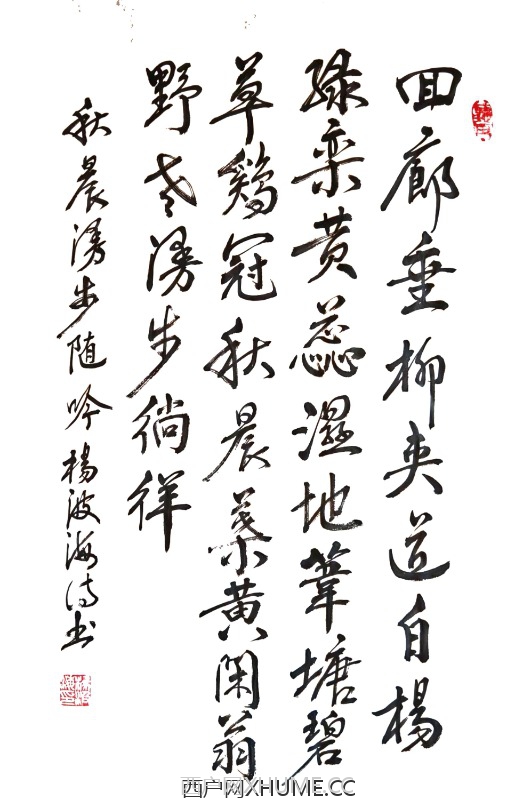 回廊垂柳夹道白楊
绿栾黄蕊湿地葦塘碧
草鷄冠秋晨葉黄闲翁
野老漫步徜徉
秋晨漫步随吟 楊波海诗书
西户网XHUME.CC